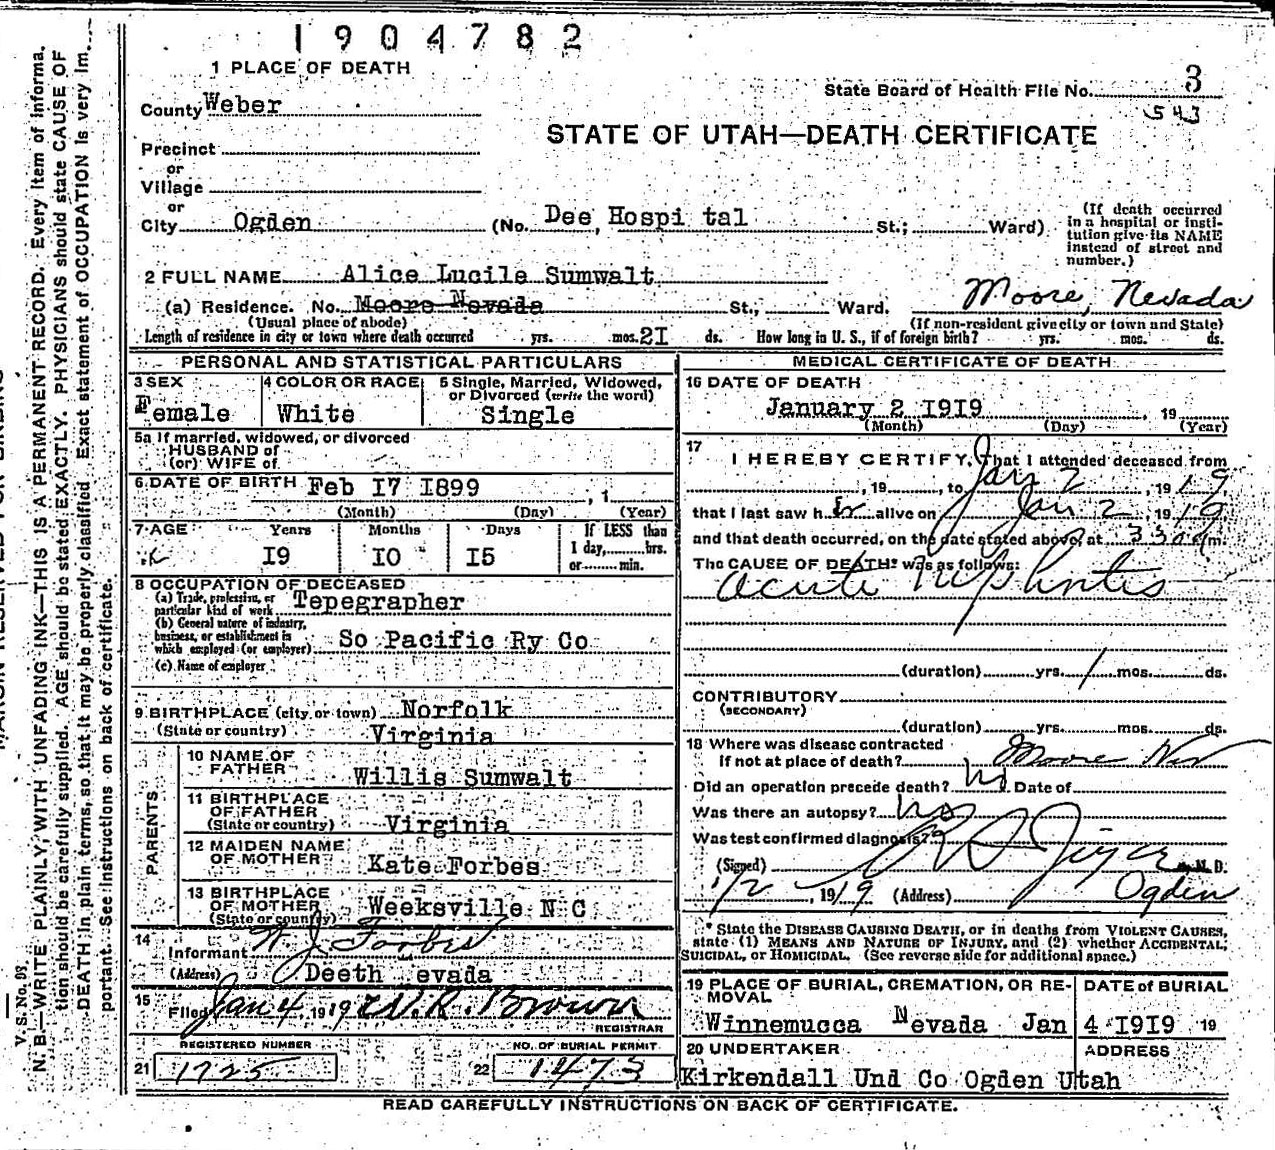 1904782
1 PLACE OF DEATH
State Board of Health File No. 3
543
County Weber
STATE OF UTAH—DEATH CERTIFICATE
Precinct
or
Village
or
City Ogden (No. Dee Hospi tal St.; Ward)
(If death occurred in a hospital or insti-
tution give its NAME instead of street and number.)
2 FULL NAME Alice Lucile Sumwalt
(a) Residence. No. Moore Nevada St., Ward. Moore, Nevada
(Usual place of abode) (If non-resident give city or town and State)
Length of residence in city or town where death occurred yrs. mos. 2I ds. How long in U. S., if of foreign birth? yrs. mos. ds.
PERSONAL AND STATISTICAL PARTICULARS
3 SEX
Female
4 COLOR OR RACE
White
5 Single, Married, Widowed,
or Divorced (write the word)
Single
5a If married, widowed, or divorced
HUSBAND of
(or) WIFE of
6 DATE OF BIRTH Feb I7 I899 , 1
(Month) (Day) (Year)
7 AGE Years Months Days If LESS than
1 day, hrs.
or min.
I9 IO I5
8 OCCUPATION OF DECEASED
(a) Trade, profession, or
particular kind of work Tepegrapher
(b) General nature of industry,
business, or establishment in
which employed (or employer) So Pacific Ry Co
(c) Name of employer
9 BIRTHPLACE (city or town) Norfolk
(State or country) Virginia
PARENTS
10 NAME OF
FATHER Willis Sumwalt
11 BIRTHPLACE
OF FATHER
(State or country) Virginia
12 MAIDEN NAME
OF MOTHER Kate Forbes
13 BIRTHPLACE
OF MOTHER
(State or country) Weeksville N C
14
Informant W J Forbes
(Address) Deeth evada
15
Filed Jan 4 1919 W. R. Brown
REGISTRAR
REGISTERED NUMBER
21 1725
NO. OF BURIAL PERMIT
22 1473
MEDICAL CERTIFICATE OF DEATH
16 DATE OF DEATH
January 2 I9I9 , 19
(Month) (Day) (Year)
17
I HEREBY CERTIFY, That I attended deceased from
, 19 , to Jan 2 , 1919
that I last saw her alive on Jan 2 1919
and that death occurred, on the date stated above, at 330a m.
The CAUSE OF DEATH* was as follows:
acute Nephritis
(duration) yrs. 1 mos. ds.
CONTRIBUTORY
(SECONDARY)
(duration) yrs. mos. ds.
18 Where was disease contracted
If not at place of death? Moore Nev
Did an operation precede death? No Date of
Was there an autopsy? No
Was test confirmed diagnosis?
(Signed) M. D.
1/2, 1919 (Address) Ogden
* State the DISEASE CAUSING DEATH, or in deaths from VIOLENT CAUSES,
state (1) MEANS AND NATURE OF INJURY, and (2) whether ACCIDENTAL,
SUICIDAL, or HOMICIDAL. (See reverse side for additional space.)
19 PLACE OF BURIAL, CREMATION, OR RE-
MOVAL
DATE of BURIAL
Winnemucca Nevada Jan 4 I9I9 19
20 UNDERTAKER ADDRESS
Kirkendall Und Co Ogden Utah
READ CAREFULLY INSTRUCTIONS ON BACK OF CERTIFICATE.
V. S. No. 98
N. B.—WRITE PLAINLY, WITH UNFADING INK—THIS IS A PERMANENT RECORD. Every item of informa-
tion should be carefully supplied. AGE should be stated EXACTLY. PHYSICIANS should state CAUSE OF
DEATH in plain terms, so that it may be properly classified. Exact statement of OCCUPATION is very im-
portant. See instructions on back of certificate.